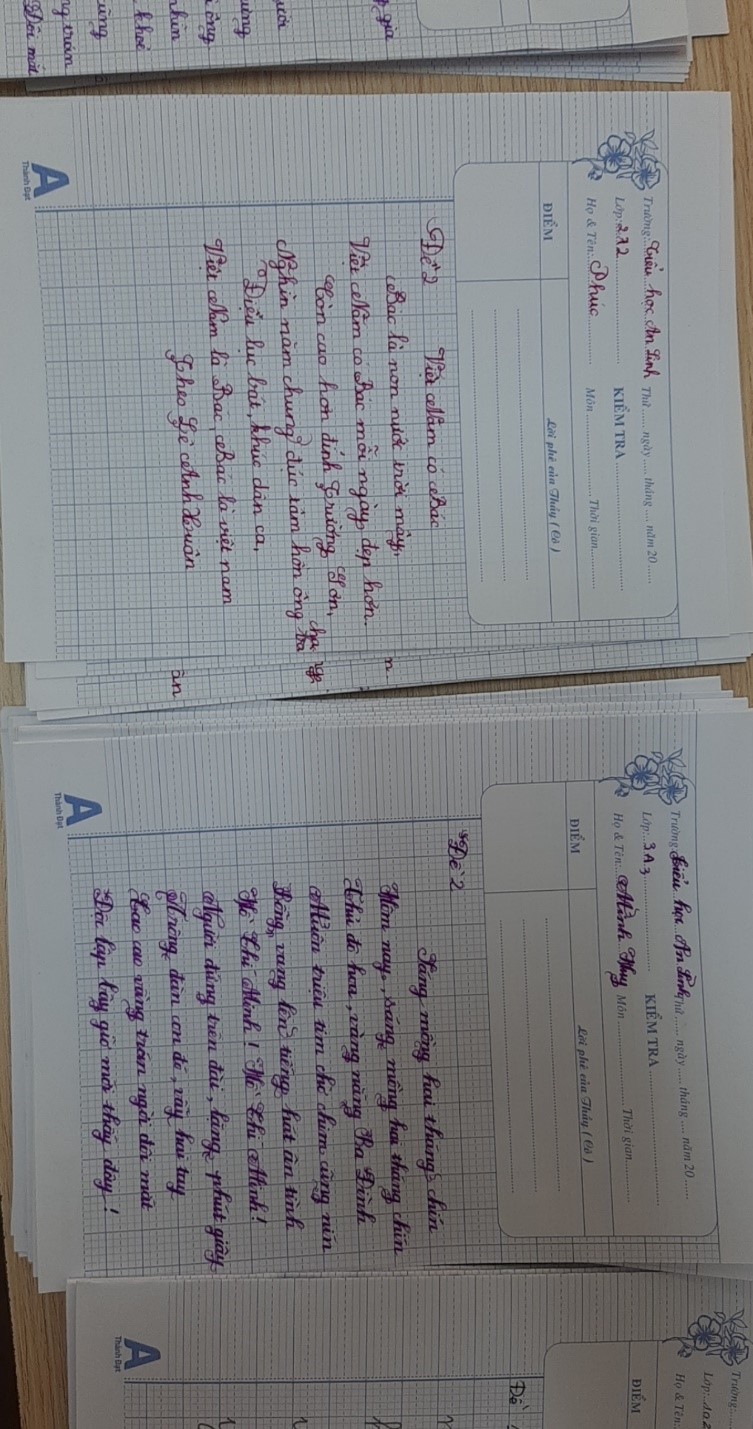 g già
ười
ường
i ông
nhìn
ường
khoẻ
ng trán
Đôi mắt
Trường: Tiểu học An Linh Thứ ...... ngày .... tháng .... năm 20 .....
Lớp: 2A2 KIỂM TRA
Họ & Tên: Phúc Môn Thời gian
ĐIỂM
Lời phê của Thầy ( Cô )
Đề 2 Việt Nam có Bác
Bác là non nước trời mây,
Việt Nam có Bác mỗi ngày đẹp hơn.
Còn cao hơn đỉnh Trường Sơn,
Nghìn năm chung đúc tâm hồn ông cha
Điệu lục bát, khúc dân ca,
Việt Nam là Bác, Bác là việt nam
Theo Lê Anh Xuân
A
Thành Đạt
n
ân
Trường: Tiểu học An Linh Thứ ...... ngày .... tháng .... năm 20 .....
Lớp: 3A3 KIỂM TRA
Họ & Tên: Mạnh Huy Môn Thời gian
ĐIỂM
Lời phê của Thầy ( Cô )
Đề 2
Sáng mồng hai tháng chín
Hôm nay, sáng mồng hai tháng chín
Thủ đô hoa, vàng nắng Ba Đình
Muôn triệu tim chờ chim cũng nín
Bỗng vang lên tiếng hát ân tình
Hồ Chí Minh ! Hồ Chí Minh !
Người đứng trên đài, lặng phút giây
Trông đàn con đó, vẫy hai tay
Cao cao vầng trán ngời đôi mắt
Độc lập bây giờ mới thấy đây !
A
Thành Đạt
Trường:
Lớp:
Họ & Tên:
ĐIỂM
Đề
A
Thành Đạt